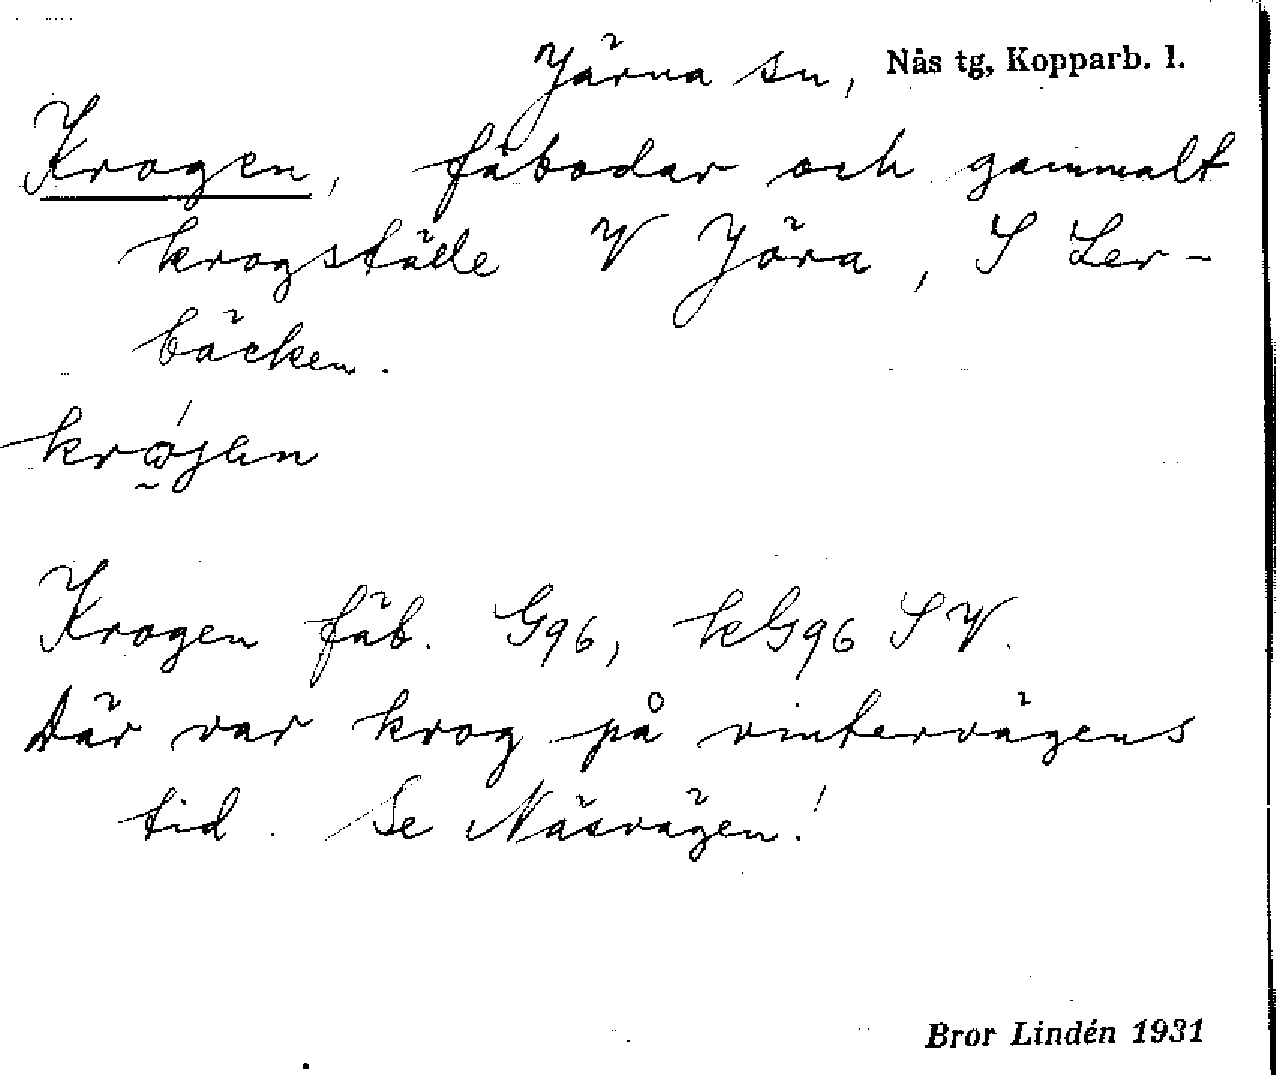 Järna sn, Nås tg, Kopparb. l.
Krogen, fäbodar och gammalt
krogställe V Jöra, S Ler-
bäcken.
Krogen fäb. G96, kG96 SV.
Där var krog på vintervägens
tid. Se Näsvägen!
Bror Lindén 1931